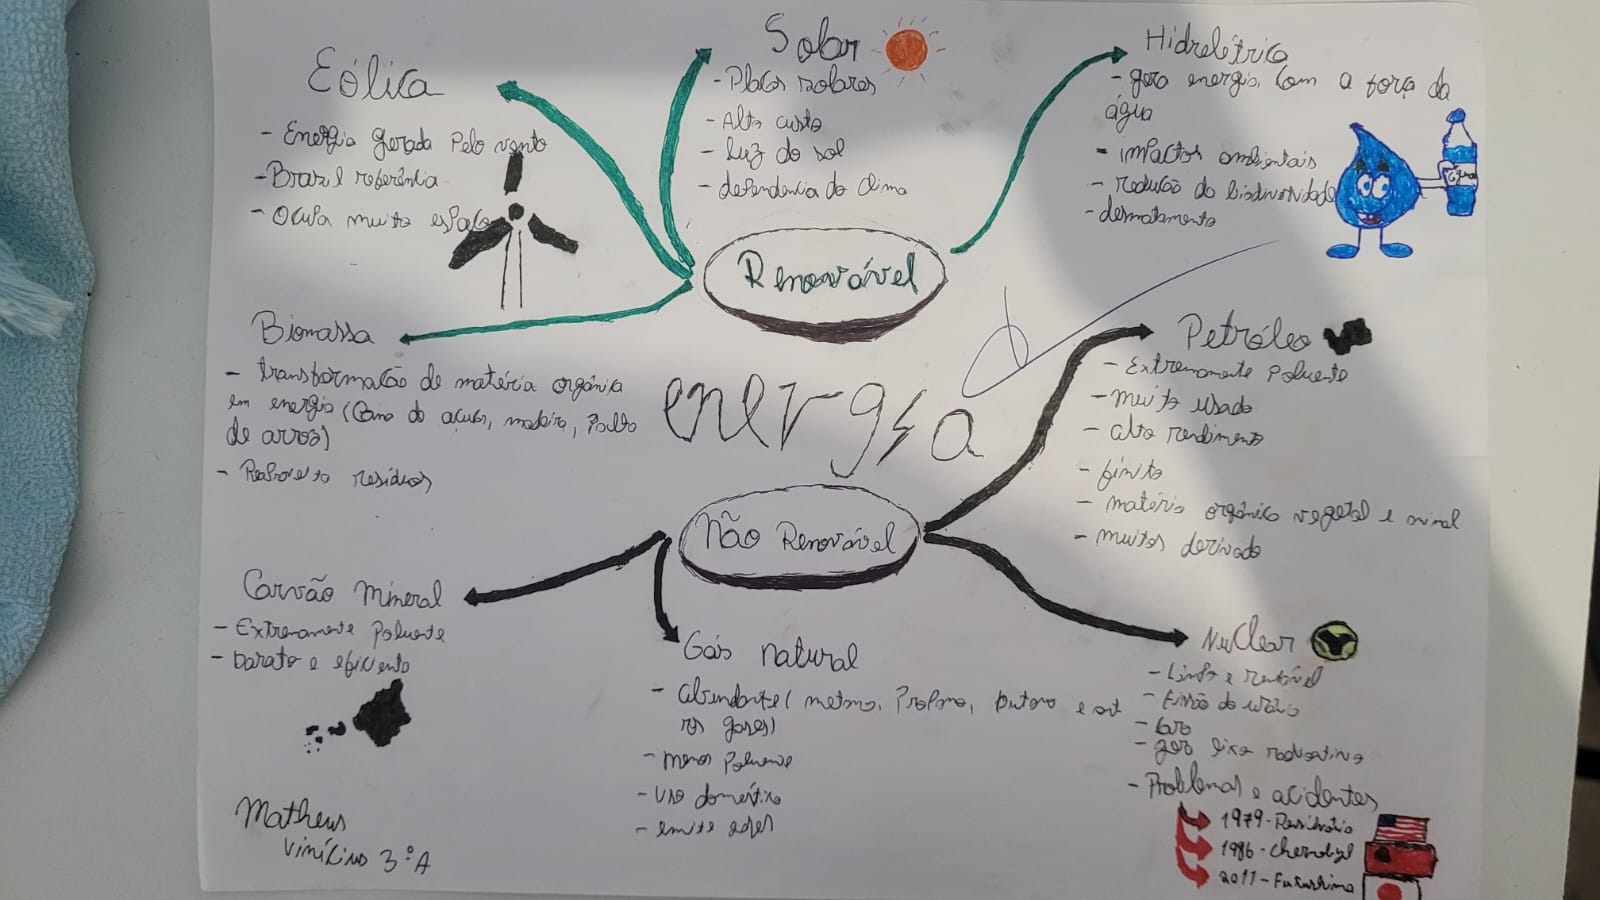 Eólica
- Energia gerada pelo vento
- Brazil referência
- Ocupa muito espaço
Solar
- Placas solares
- Alto custo
- Luz do sol
- dependencia do clima
Hidrelétrica
- gera energia com a força da
água
- impactos ambientais
- redução da biodiversidade
- desmatamento
água
Renovável
Biomassa
- transformação de matéria orgânica
em energia (Cana de açucar, madeira, Palha
de arroz)
- resíduos
energia
Petróleo
- Extremamente Poluente
- muito usado
- alto rendimento
- finito
- matéria orgânica vegetal e animal
- muitos derivado
Não Renovável
Carvão Mineral
- Extremamente Poluente
- barato e eficiente
Gás natural
- abundante ( metano, Propano, butano e out
ros gases)
- menos Poluente
- uso doméstico
- emite
Nuclear
- Limpa e rentável
- Fissão do urânio
- caro
- gera lixo radioativo
- Problemas e acidentes
1979 -
1986 - Chernobyl
2011 - Fukushima
Matheus
Vinícius 3°A